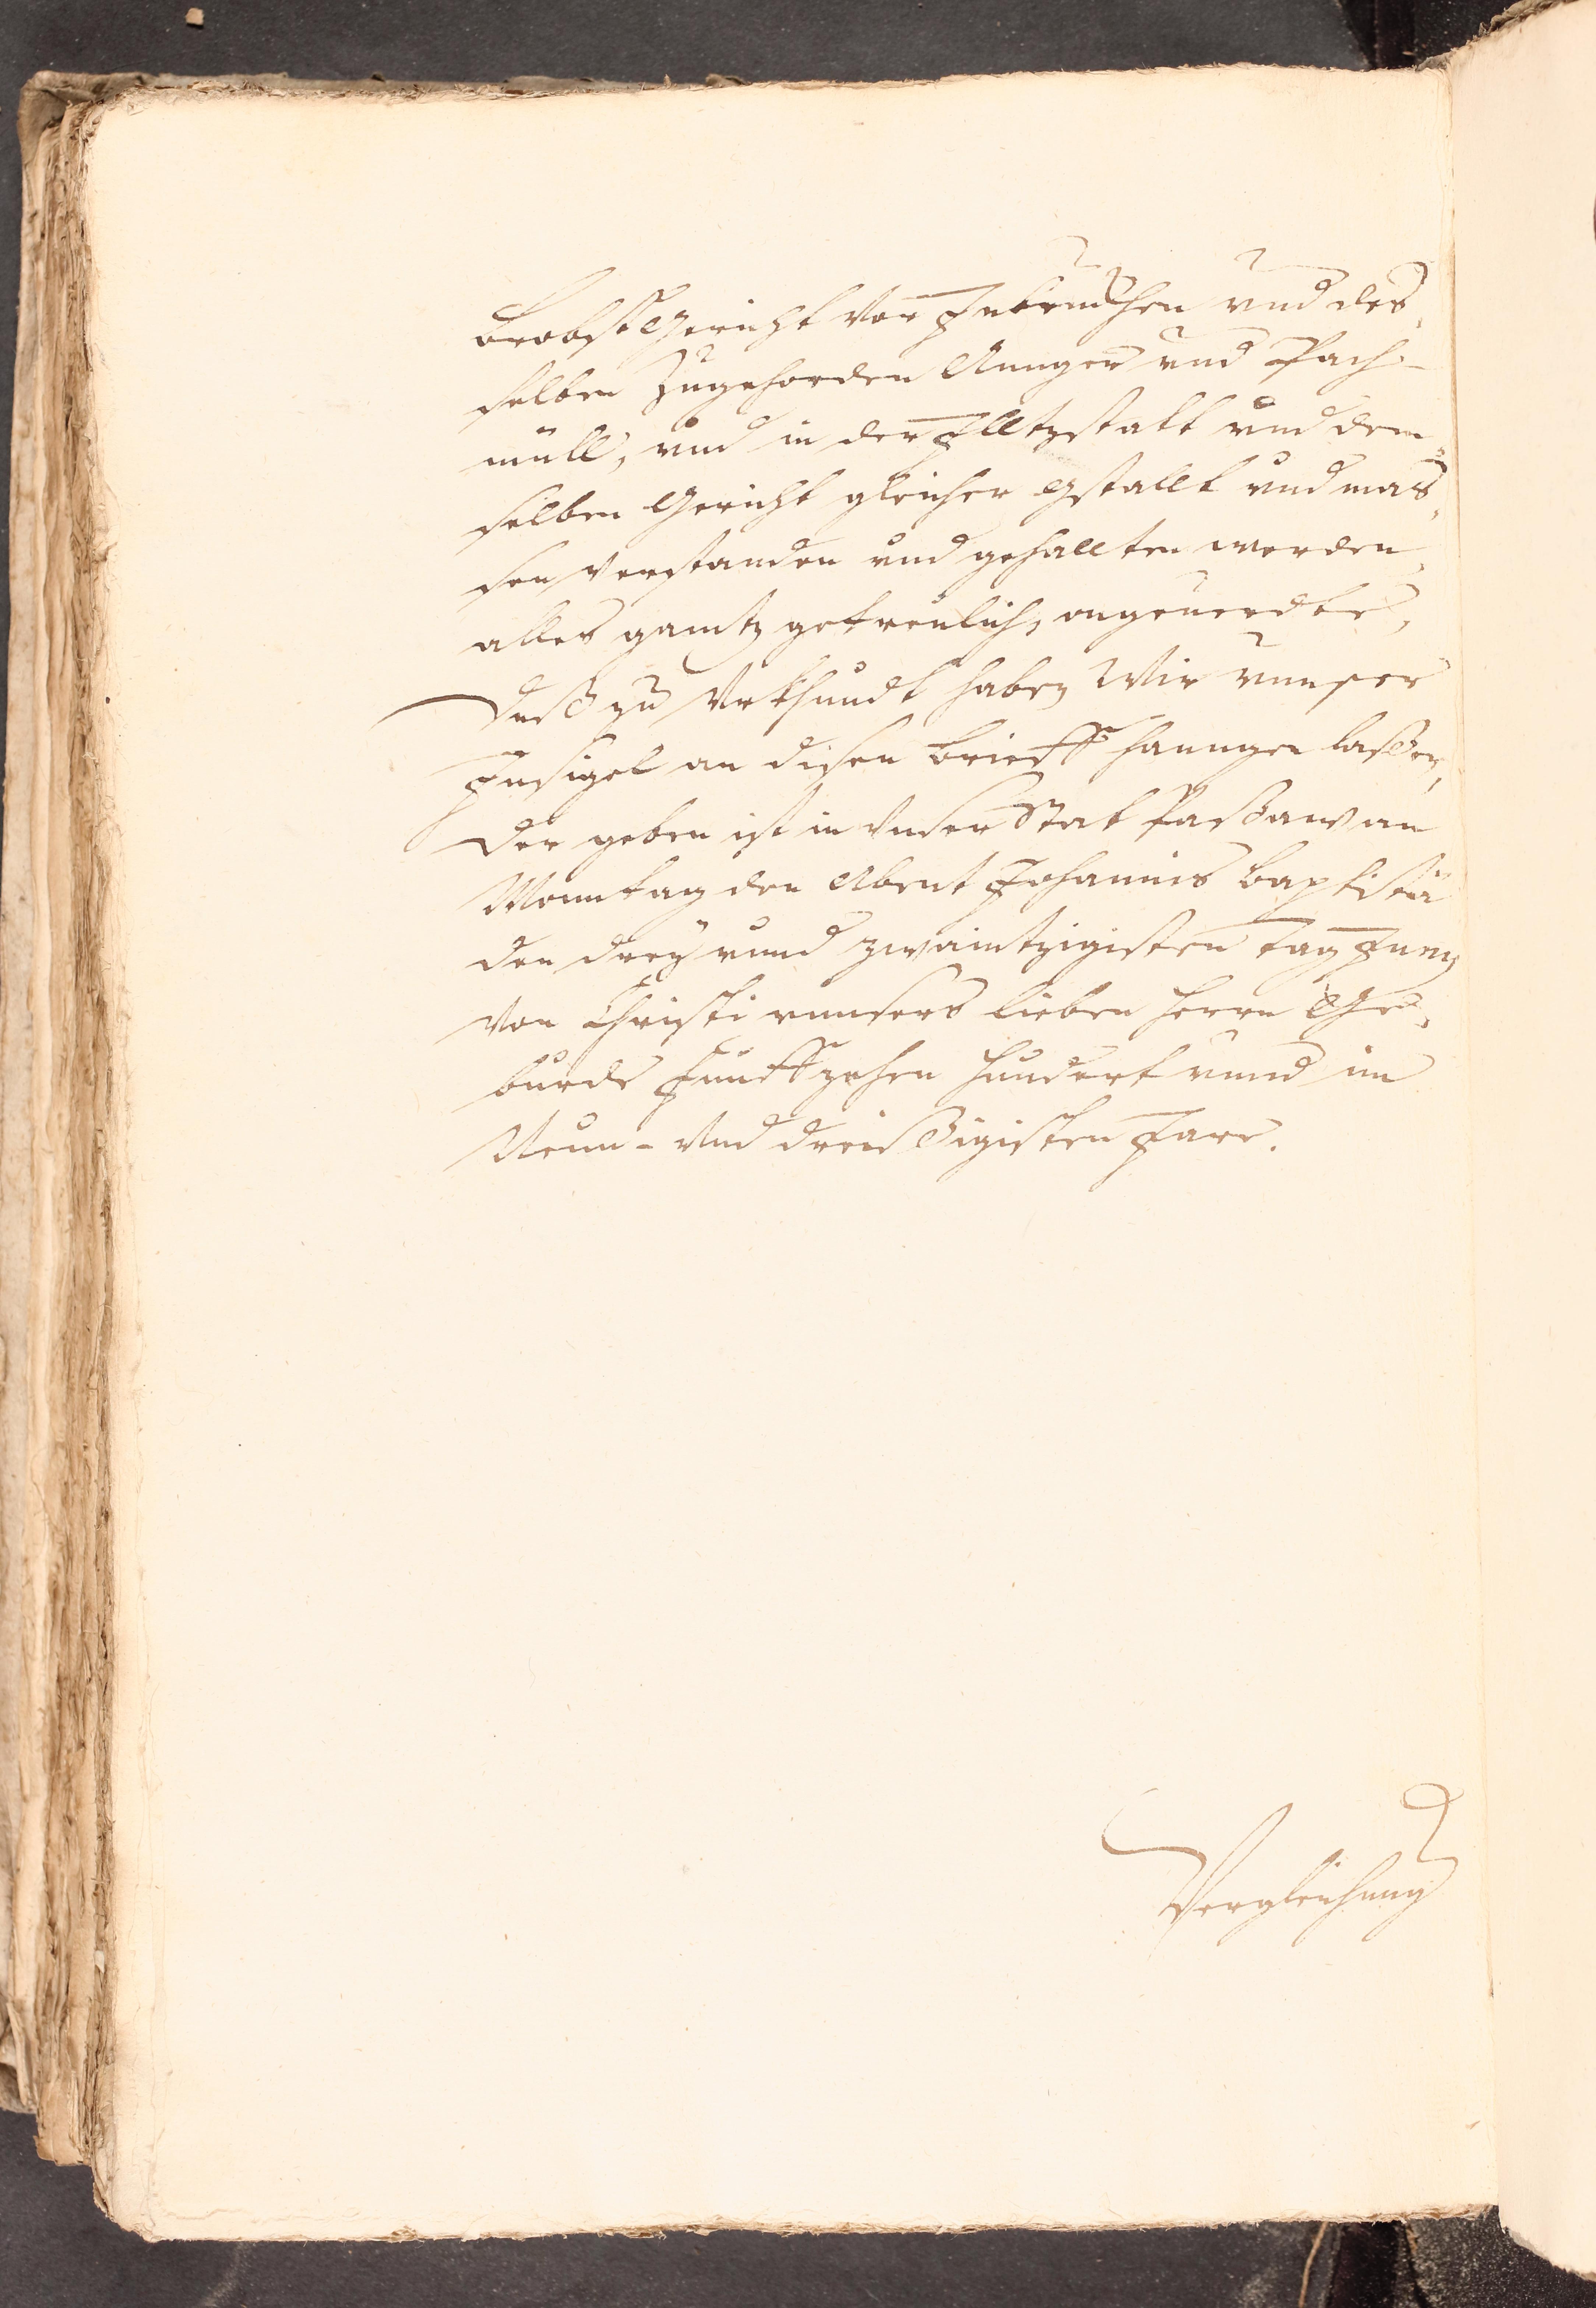 BrobstGericht vor Jnbrukhen vnd des„
selben Zugehorden Aunger vnd Pach-
müll, vnd in der Jlltzstatt vnd dem„
selben Gericht gleicher gstallt vnd mas„
sen verstanden vnd gehallten werden,
alles gantz getreulich, ongeuerdte,
Deß zu Vrkhundt haben Wir vnnser
Jnsigel an disen brieff hanngen lassen,
Der geben ist in vnser Stat Passaw am
Monntag den Abent Johannis baptistä
den drey vnnd zwaintzigisten tag Juny
von Christi vnnsers lieben herrn Ge„
burde fünffzehen hundert vnnd im
Neun- vnd dreissigisten Jare.
Vergleichung